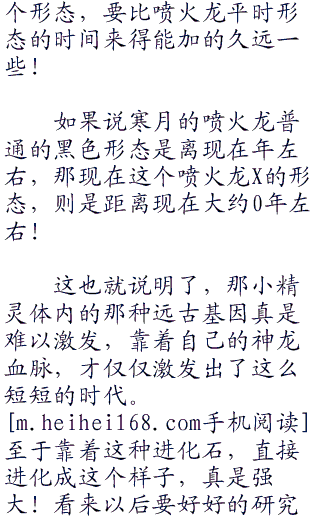 个形态，要比喷火龙平时形
态的时间来得能加的久远一
些！
如果说寒月的喷火龙普
通的黑色形态是离现在年左
右，那现在这个喷火龙X的形
态，则是距离现在大约0年左
右！
这也就说明了，那小精
灵体内的那种远古基因真是
难以激发，靠着自己的神龙
血脉，才仅仅激发出了这么
短短的时代。
[m.heihei168.com手机阅读]
至于靠着这种进化石，直接
进化成这个样子，真是强
大！看来以后要好好的研究